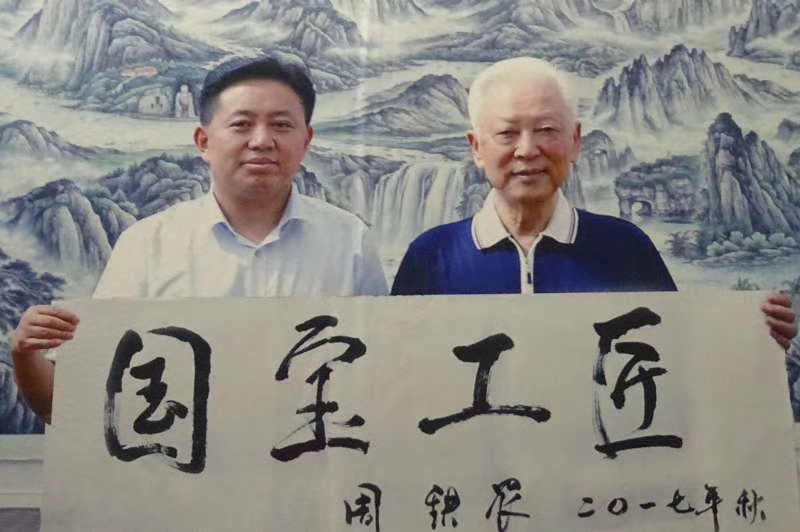 国宝工匠
周铁农 二〇一七年秋